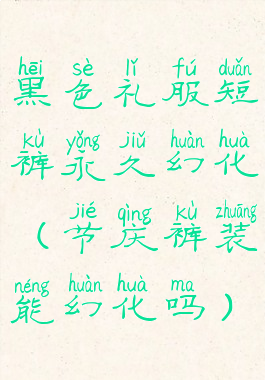 hēi sè lǐ fú duǎn
黑色礼服短
kù yǒng jiǔ huàn huà
裤永久幻化
jié qìng kù zhuāng
（节庆裤装
néng huàn huà ma
能幻化吗）